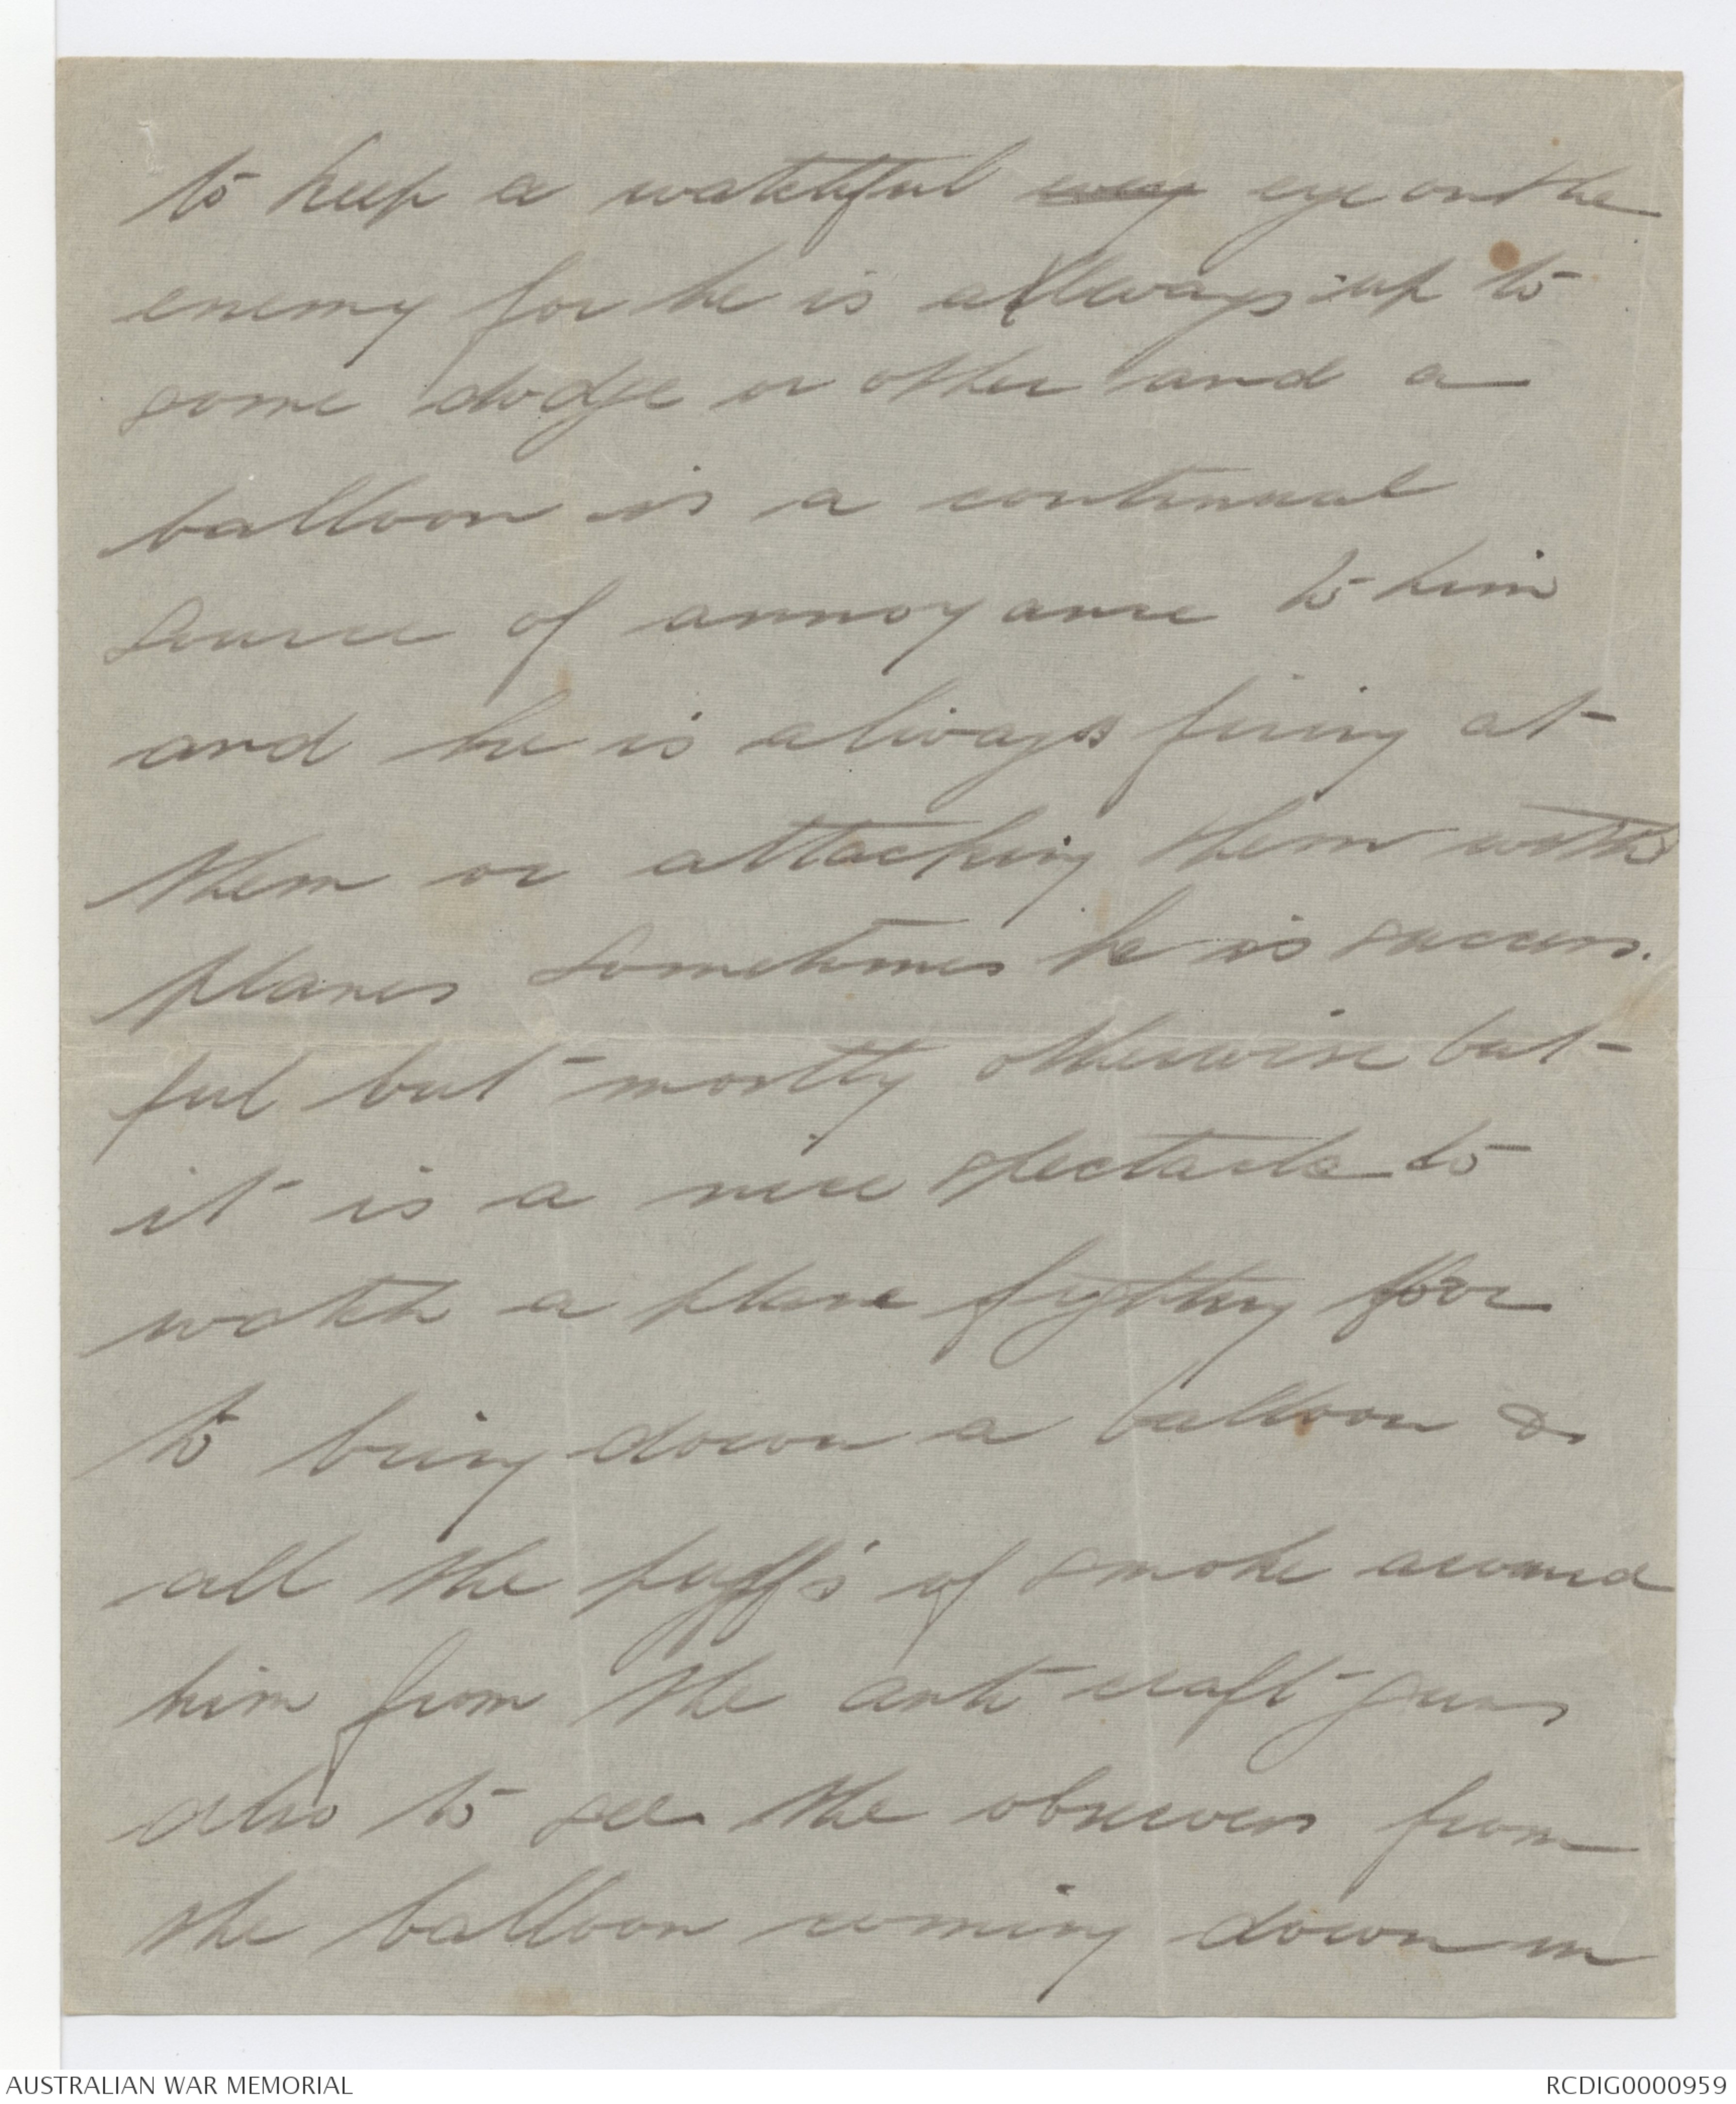 to keep a watchful eye on the
enemy for he is always up to
some dodge or other and a
balloon is a continual
source of annoyance to him
and he is always firing at
them or attacking them with
planes sometimes he is success.
ful but mostly otherwise but
it is a nice spectacle to
watch a plane fighting for
to bring down a balloon &
all the puffs of smoke around
him from the anti craft guns
also to see the observers from
the balloon coming down in
AUSTRALIAN WAR MEMORIAL
RCDIG0000959